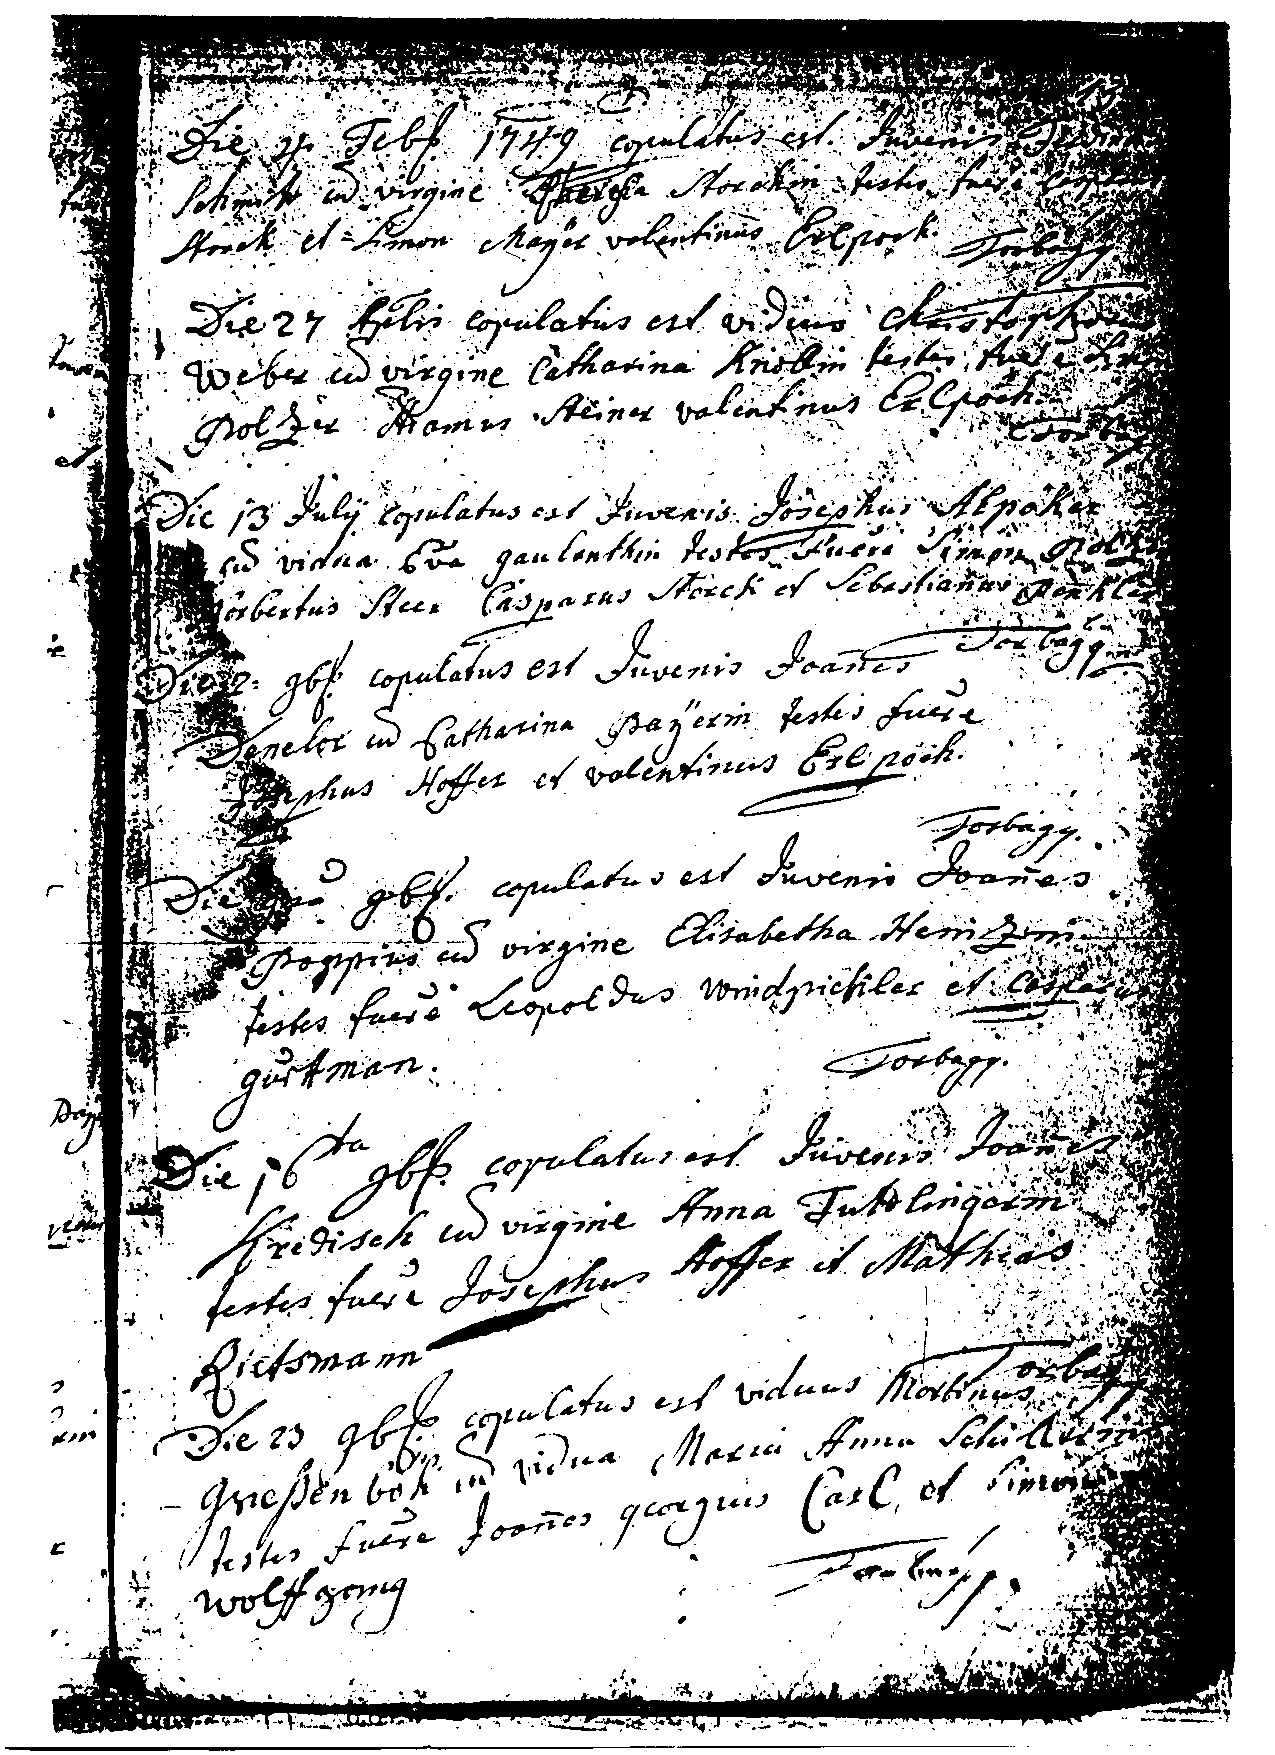 13
Die 4. Febr. 1749 copulatus est Juvenis
Schmitt cū virgine Theresia Storckin testes fuere
Storck et Simon Mayer valentinus Erlpock.
Torbagy
Die 27 Aplis copulatus est viduus Christophorus
Weber cū virgine Catharina Knoblin testes fuere
Polzer Thamus Steiner valentinus Erlpöck.
Torbagy
Die 13 July copulatus est Juvenis Josephus Alpöker
cū vidua Eva testes fuere Simon
Norbertus Steer Casparus Storck et Sebastianus
Torbagy
Die 2: 9br. copulatus est Juvenis Joañes
Denelor cū Catharina Payerin testes fuere
Josephus Hoffer et valentinus Erlpöck.
Torbagy.
Die 9br. copulatus est Juvenis Joañes
Poppius cū virgine Elisabetha
testes fuere Leopoldus windpichler et Casparus
gurtman.
Torbagy.
Die 16ta 9br. copulatus est Juvenis Joañes
cū virgine Anna Tuttlingerin
testes fuere Josephus Hoffer et Mathias
Rietsmann
Torbagy
Die 23 9br. copulatus est viduus Martinus
Grießenbök cū vidua Maria Anna
testes fuere Joañes georgius Carl et Simon
wolffgang
Torbagy